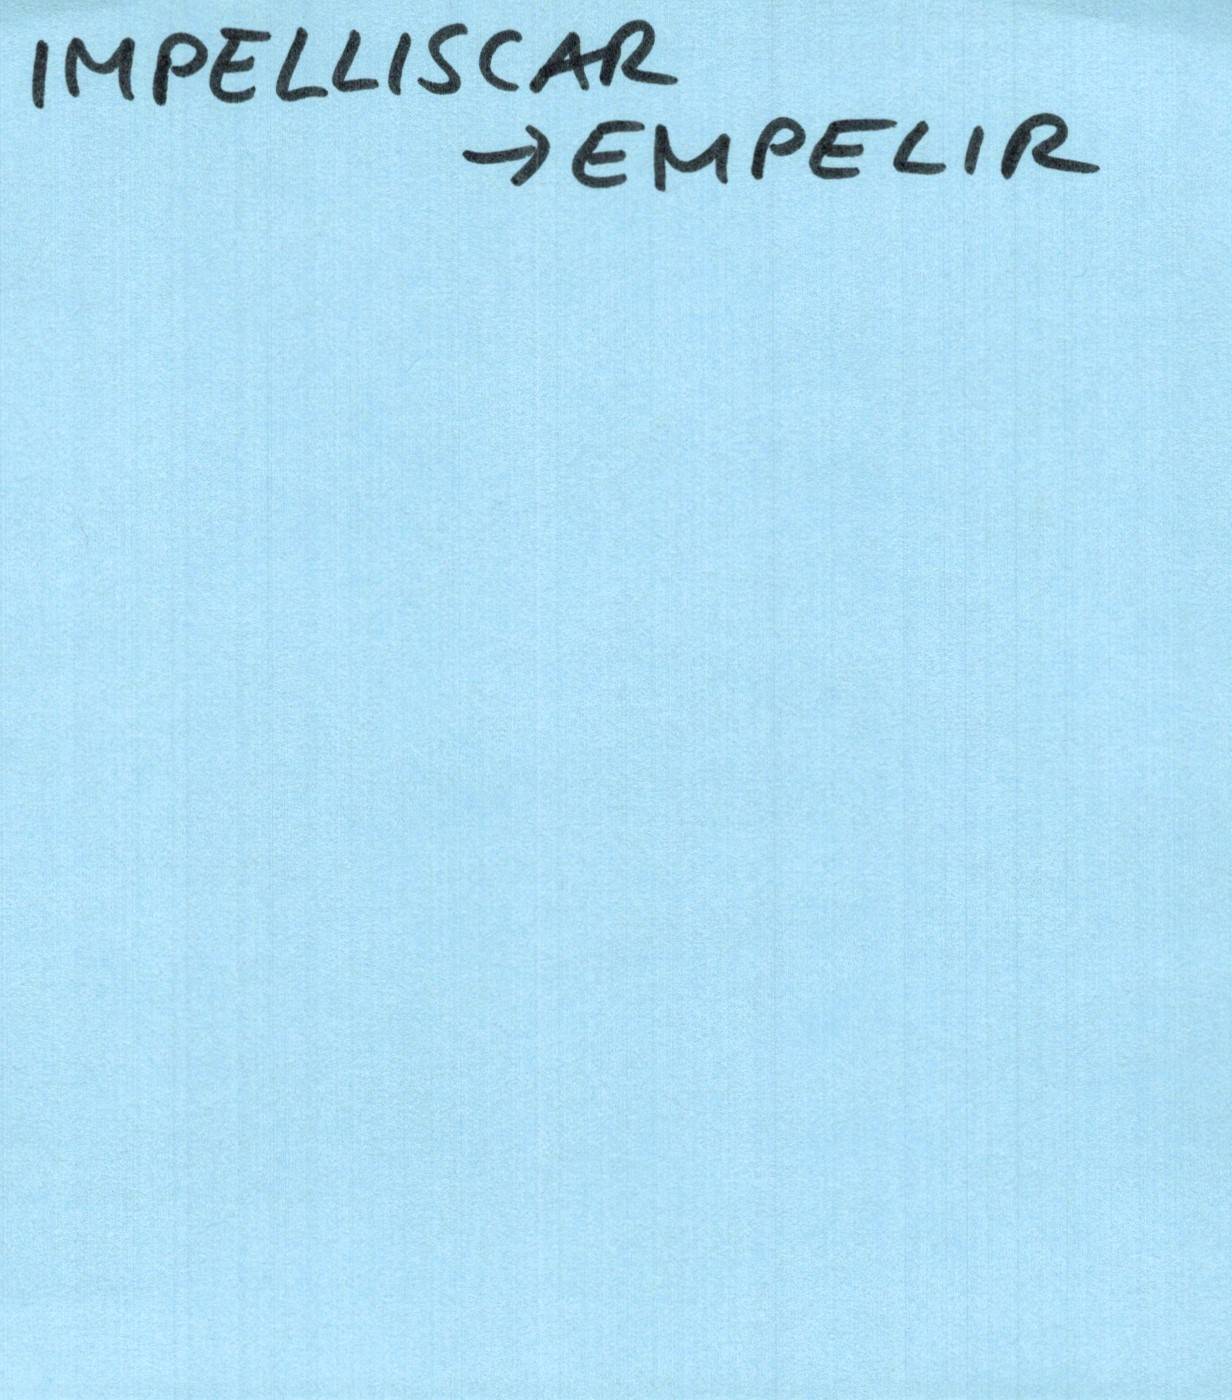 IMPELLISCAR
→EMPELIR